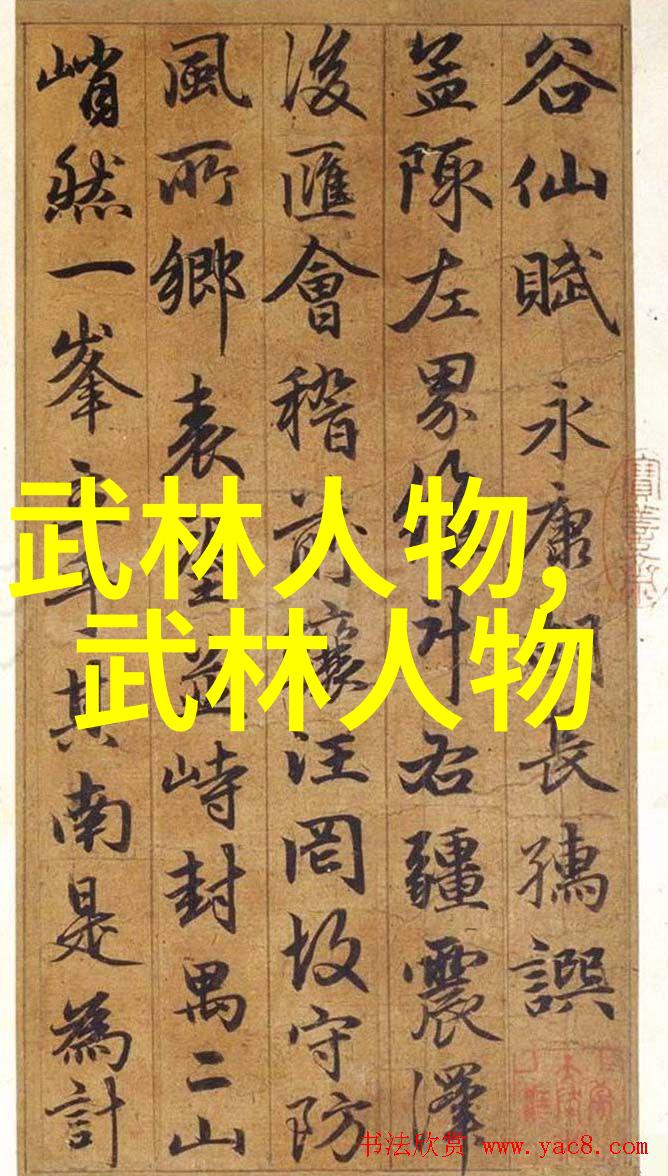 谷仙賦 永康長孺譔
盖陳左界右疆震澤
後匯會稽前汪罔故守防
風所鄉表望並峙封禺二山
峭然一峯立乎其南是為計
武林人物,
武林人物
书法欣赏 www.yac8.com